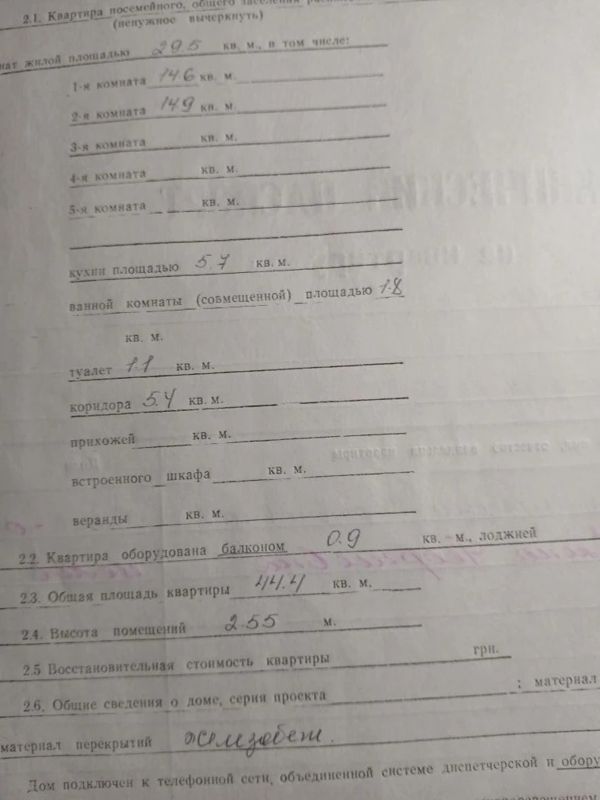 2.1. Квартира посемейного, общего заселения
(ненужное вычеркнуть)
нат жилой площадью 29.5 кв. м., в том числе:
1-я комната 14.6 кв. м.
2-я комната 14.9 кв. м.
3-я комната кв. м.
4-я комната кв. м.
5-я комната кв. м.
кухни площадью 5.7 кв. м.
ванной комнаты (совмещенной) площадью 1.8
кв. м.
туалет 1.1 кв. м.
коридора 5.4 кв. м.
прихожей кв. м.
встроенного шкафа кв. м.
веранды кв. м.
2.2. Квартира оборудована балконом 0.9 кв. м., лоджией
2.3. Общая площадь квартиры 44.4 кв. м.
2.4. Высота помещений 2.55 м.
2.5 Восстановительная стоимость квартиры грн.
2.6. Общие сведения о доме, серия проекта ; материал
материал перекрытий железобет.
Дом подключен к телефонной сети, объединенной системе диспетчерской и обору